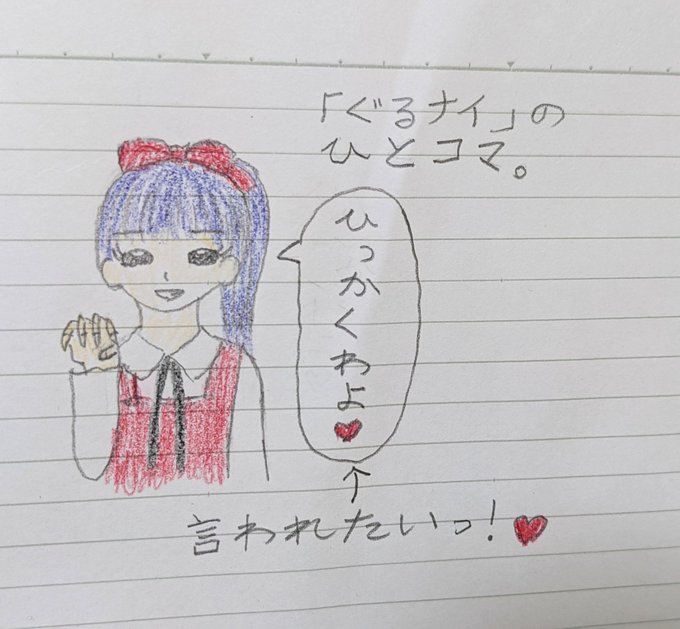 「ぐるナイ」の
ひとコマ。
ひっかくわよ♥
↑
言われたいっ!♥